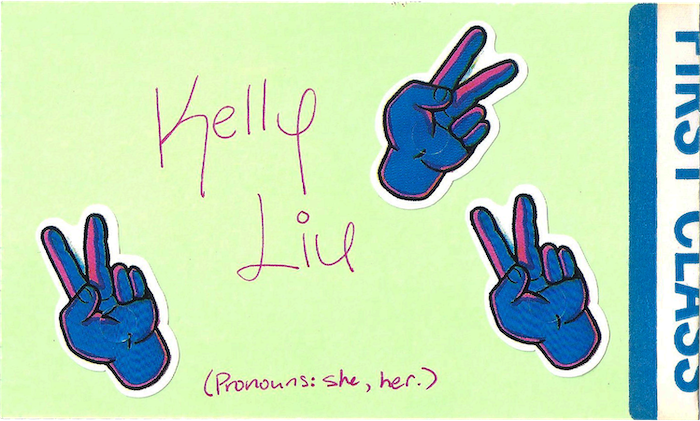 Kelly
Liu
(Pronouns: she, her.)
FIRST CLASS